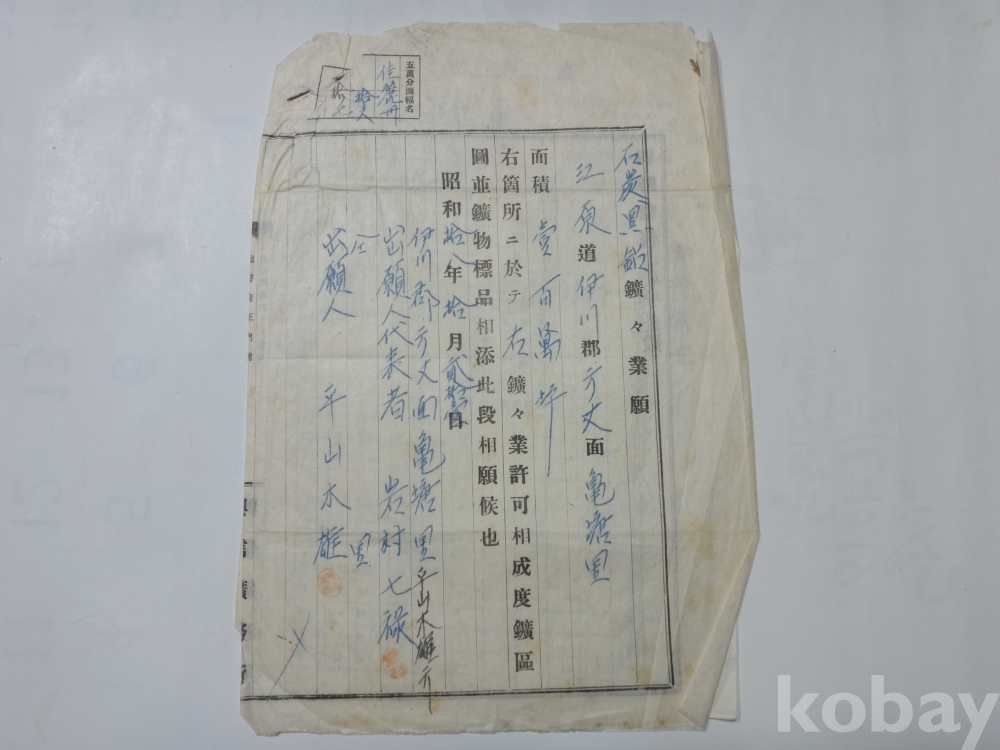 五萬分圖幅名
佳麗州
拾七
石炭黑鉛鑛々業願
江原道伊川郡方丈面亀塘里
面積 壹百萬坪
右箇所ニ於テ右鑛々業許可相成度鑛區
圖並鑛物標品相添此段相願候也
昭和拾八年拾月 日
伊川郡方丈面亀塘里平山木雄方
出願人代表者 岩村七祿
仝 里
出願人 平山木雄
kobay